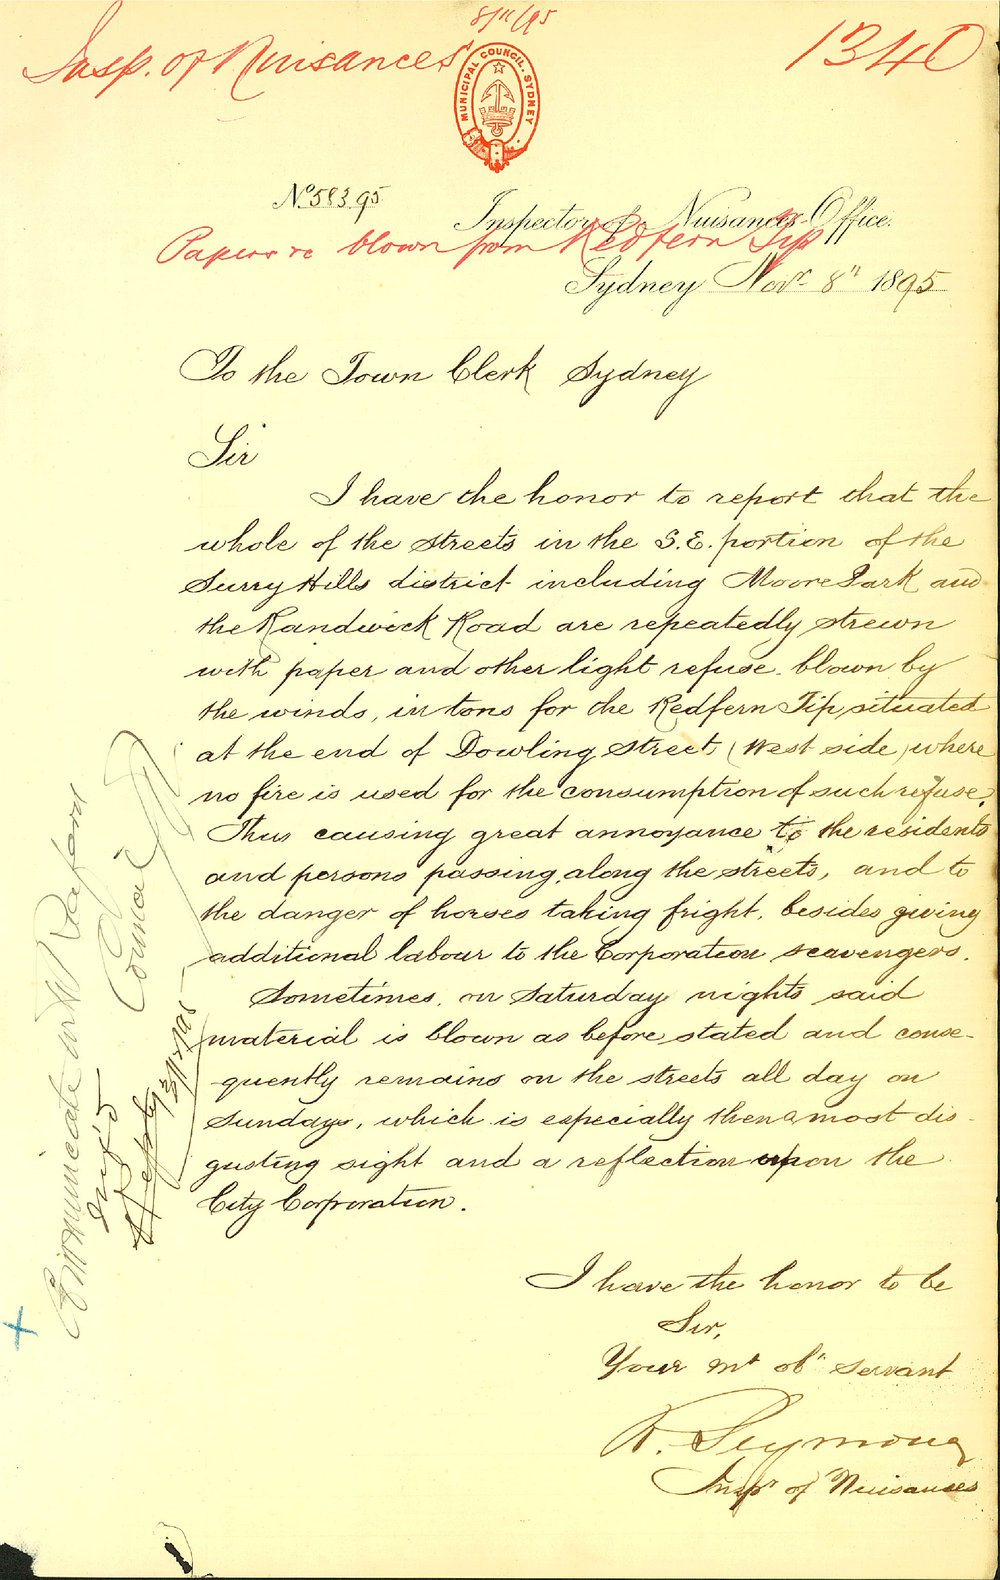 8/11/95
Insp. of Nuisances
1340
MUNICIPAL COUNCIL. SYDNEY
No. 583.95
Inspector of Nuisances Office.
Papers re blown from Redfern Tip
Sydney Novr. 8th 1895
To the Town Clerk Sydney
Sir
I have the honor to report that the
whole of the streets in the S.E. portion of the
Surry Hills district including Moore Park and
the Randwick Road are repeatedly strewn
with paper and other light refuse. blown by
the winds, in tons for the Redfern Tip, situated
at the end of Dowling Street (West side) where
no fire is used for the consumption of such refuse.
Thus causing great annoyance to the residents
and persons passing, along the streets, and to
the danger of horses taking fright, besides giving
additional labour to the Corporation scavengers.
Sometimes, on Saturday nights said
material is blown as before stated and conse-
quently remains on the streets all day on
Sundays, which is especially then a most dis-
gusting sight and a reflection upon the
City Corporation.
I have the honor to be
Sir,
Your mt obt servant
R. Seymour
Inspr of Nuisances
Communicate with Redfern
Council